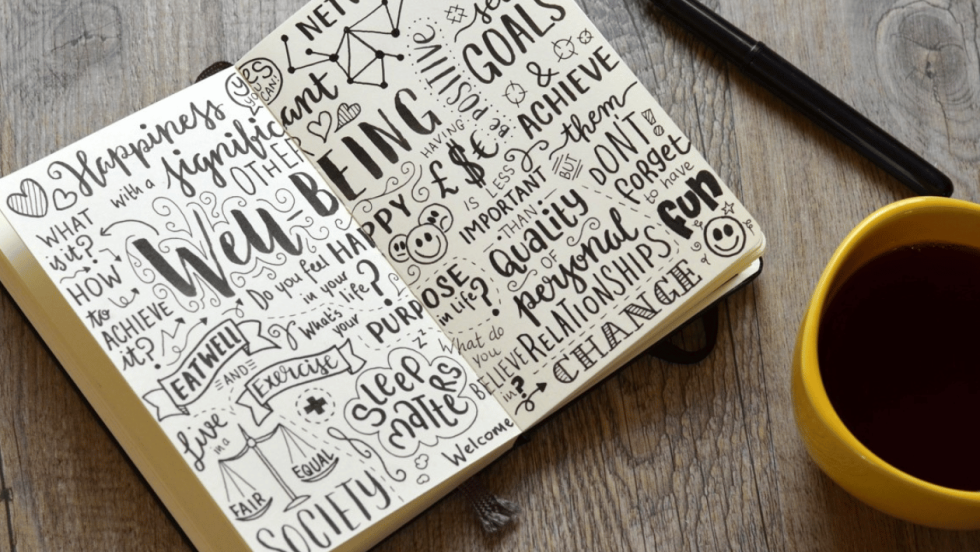 yes
you
CAN!
Happiness
with a significant
OTHER
WHAT
is it?
HOW
to
ACHIEVE
it?
Well-BEING
Do you feel HAPPY
in your
life?
What's
your PURPOSE
in life?
EAT WELL
AND
Exercise
SLEEP
MATTERS
Live
in a
FAIR
EQUAL
SOCIETY
Welcome
CHANGE
NETW
HAVING
£ $ €
IS LESS
IMPORTANT
THAN
Quality
OF
personal
RELATIONSHIPS
BE
POSITIVE
set
GOALS
& ACHIEVE
them
BUT
DON'T
forget
to have
fun
What do
you
BELIEVE
in?